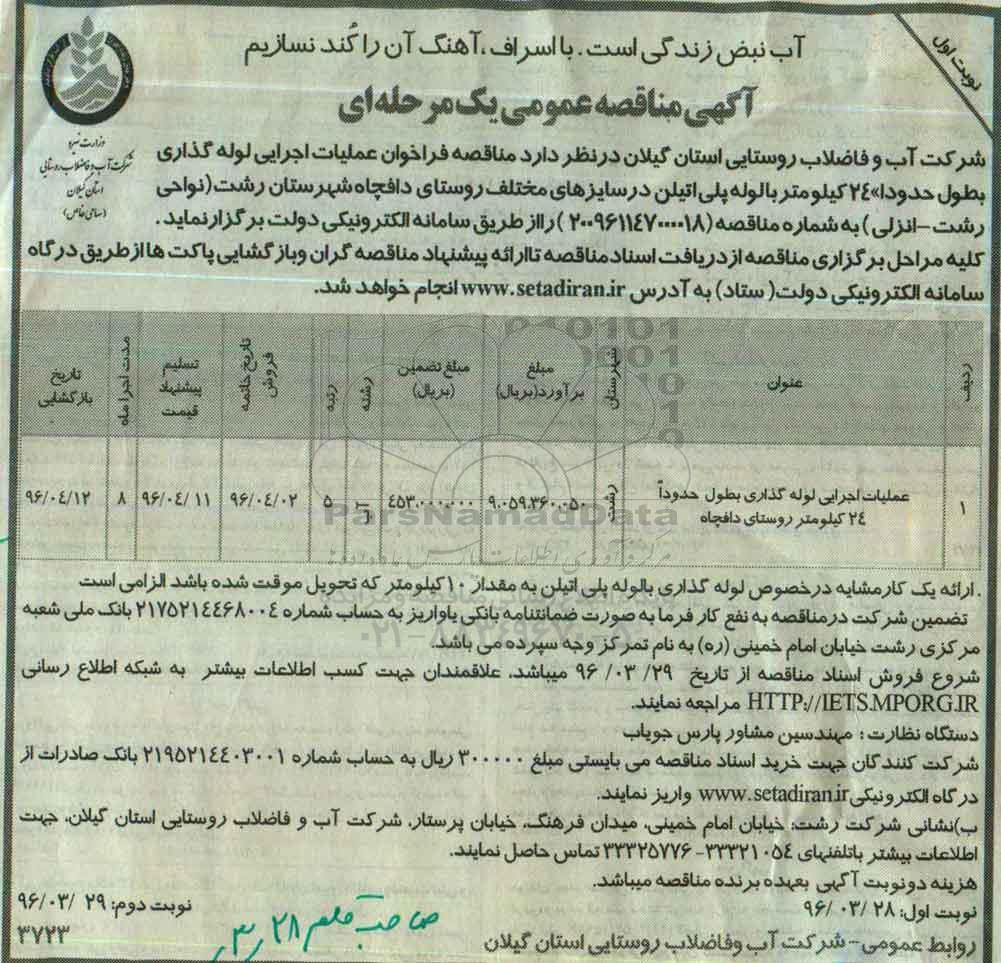 نوبت اول
آب نبض زندگی است. با اسراف، آهنگ آن را کُند نسازیم
آگهی مناقصه عمومی یک مرحله ای
وزارت نیرو
شرکت آب و فاضلاب روستایی
استان گیلان
(سهامی خاص)
شرکت آب و فاضلاب روستایی استان گیلان درنظر دارد مناقصه فراخوان عملیات اجرایی لوله گذاری
بطول حدودا» ۲٤ کیلو متر با لوله پلی اتیلن در سایزهای مختلف روستای دافچاه شهرستان رشت (نواحی
رشت – انزلی ) به شماره مناقصه (۲۰۰۹۶۱۱٤۷۰۰۰۰۱۸ ) رااز طریق سامانه الکترونیکی دولت برگزار نماید .
کلیه مراحل برگزاری مناقصه از دریافت اسناد مناقصه تا ارائه پیشنهاد مناقصه گران و بازگشایی پاکت ها از طریق درگاه
سامانه الکترونیکی دولت ( ستاد) به آدرس www.setadiran.ir انجام خواهد شد.
ردیف
عنوان
شهرستان
مبلغ برآورد(بریال)
مبلغ تضمین (بریال)
رشته
رتبه
تاریخ خاتمه فروش
تسلیم پیشنهاد قیمت
مدت اجرا ماه
تاریخ بازگشایی
۱
عملیات اجرایی لوله گذاری بطول حدوداً
۲٤ کیلومتر روستای دافچاه
رشت
۹،۰۵۹،۳۶۰،۰۵۰
٤۵۳،۰۰۰،۰۰۰
آب
۵
۹۶/۰٤/۰۲
۹۶/۰٤/ ۱۱
۸
۹۶/۰٤/۱۲
ParsNamadData
. ارائه یک کار مشابه در خصوص لوله گذاری بالوله پلی اتیلن به مقدار ۱۰ کیلومتر که تحویل موقت شده باشد الزامی است
تضمین شرکت در مناقصه به نفع کار فرما به صورت ضمانتنامه بانکی یاواریز به حساب شماره ۲۱۷۵۲۱٤٤۶۸۰۰٤ بانک ملی شعبه
مرکزی رشت خیابان امام خمینی (ره) به نام تمرکز وجه سپرده می باشد.
شروع فروش اسناد مناقصه از تاریخ ۲۹/ ۰۳/ ۹۶ میباشد، علاقمندان جهت کسب اطلاعات بیشتر به شبکه اطلاع رسانی
HTTP://IETS.MPORG.IR مراجعه نمایند.
دستگاه نظارت : مهندسین مشاور پارس جویاب
شرکت کنندگان جهت خرید اسناد مناقصه می بایستی مبلغ ۳۰۰۰۰۰ ریال به حساب شماره ۲۱۹۵۲۱٤٤۰۳۰۰۱ بانک صادرات از
درگاه الکترونیکی www.setadiran.ir واریز نمایند.
ب)نشانی شرکت رشت: خیابان امام خمینی، میدان فرهنگ، خیابان پرستار، شرکت آب و فاضلاب روستایی استان گیلان، جهت
اطلاعات بیشتر باتلفنهای ۳۳۳۲۱۰۵٤- ۳۳۳۲۵۷۷۶ تماس حاصل نمایند.
هزینه دونوبت آگهی بعهده برنده مناقصه میباشد.
نوبت اول: ۲۸ / ۰۳ /۹۶
نوبت دوم: ۲۹ /۹۶/۰۳
روابط عمومی – شرکت آب وفاضلاب روستایی استان گیلان
۳۷۲۳
صاحب قلم ۳٫۲۸